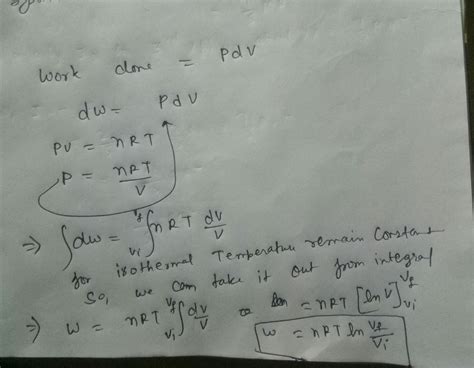 Work done = PdV
dw = PdV
PV = nRT
P = nRT/V
⇒ ∫dw = ∫_{Vi}^{Vf} nRT dV/V
for isothermal Temperature remain Constant
So, we can take it out from integral
⇒ W = nRT ∫_{Vi}^{Vf} dV/V = nRT [ln V]_{Vi}^{Vf}
W = nRT ln Vf/Vi